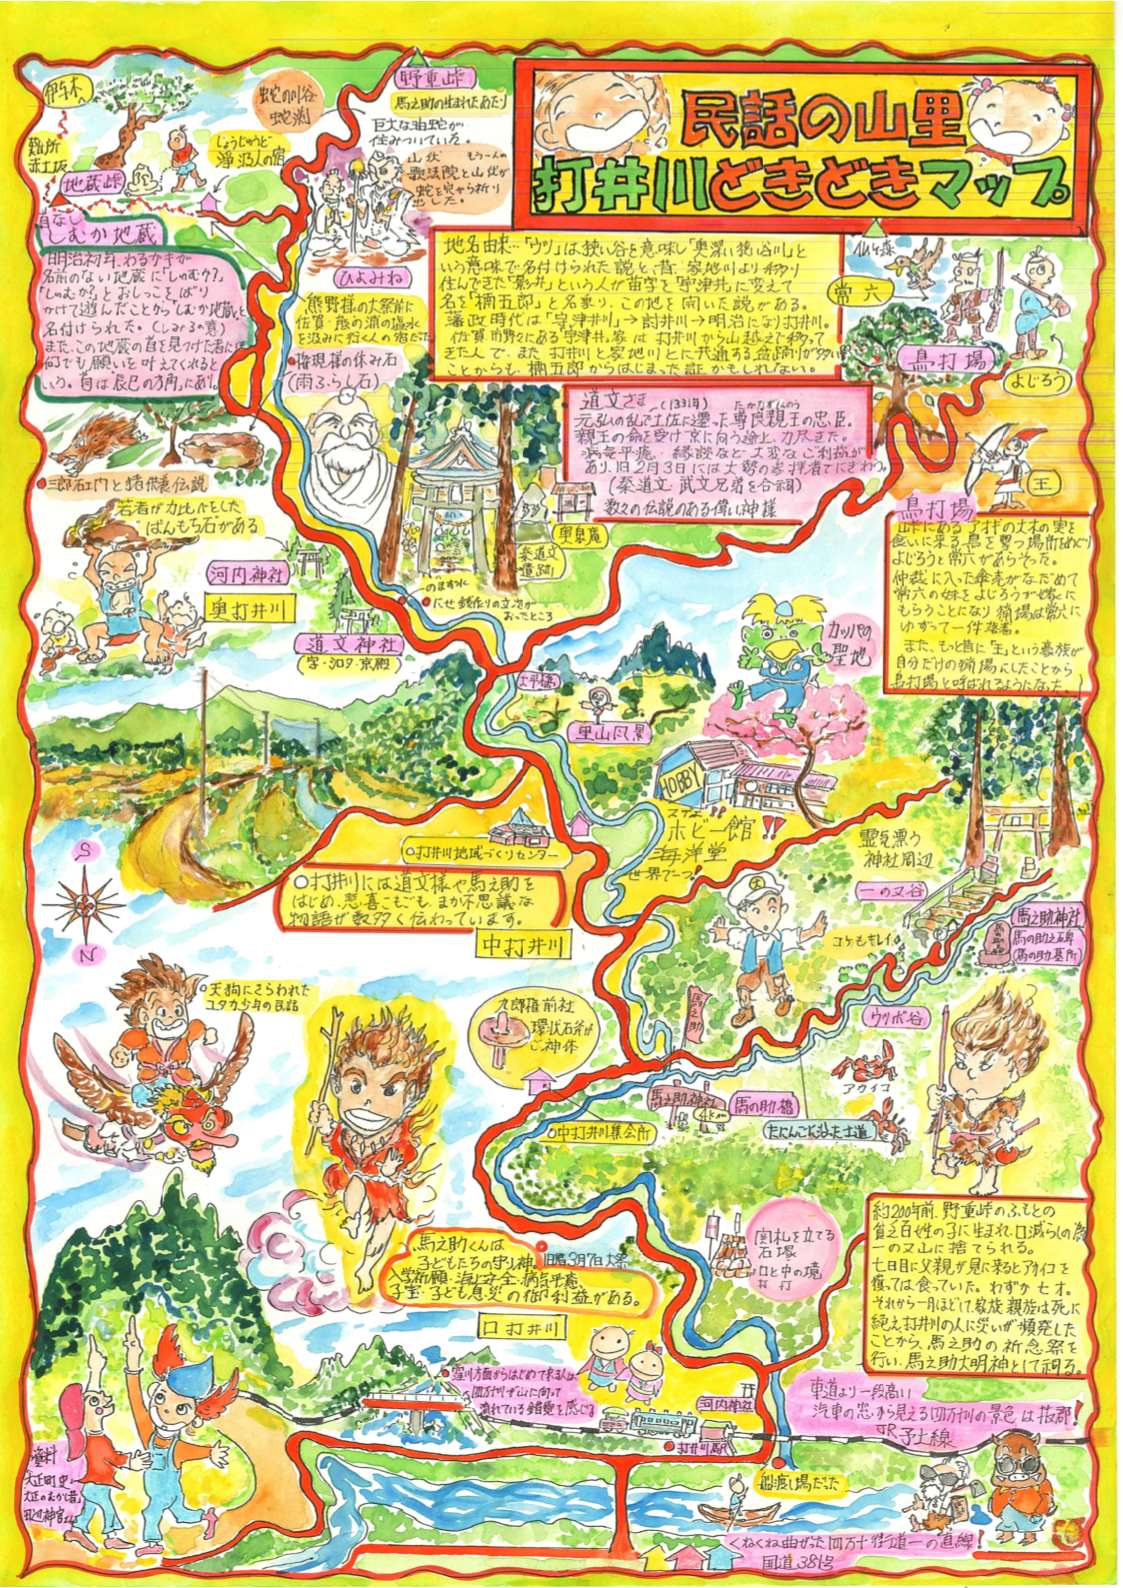 民話の山里
打井川どきどきマップ
伊与木へ
難所
赤土坂
地蔵峠
じょうじゅうど
浄瑠人の宿
蛇の川谷
蛇渕
野重峠
馬之助の生まれたあたり
巨大な油蛇が
住みついている。
山伏
歌法院と山伏が
蛇を穴から祈り
出した。
首なし
しむか地蔵
明治初年、わるガキが
名前のない地蔵に「しゃむか?」
「しゃむか」とおしっこをばり
かけて遊んだことから「しむか地蔵」と
名付けられた。(しみるの意)
また、この地蔵の首を見つけた者には
何でも願いを叶えてくれると
いう。首は辰巳の方角にあり。
ひよみね
熊野様の大祭前に
佐賀・熊の浦の塩水
を汲みに行く人の宿だった
権現様の休み石
(雨ふらし石)
地名由来…「ウツ」は狭い谷を意味し「奥深い狭い谷川」と
いう意味で名付けられた説と、昔、家地川より移り
住んできた「影井」という人が苗字を「宇津井」に変えて
名を「楠五郎」と名乗り、この地を開いた説がある。
藩政時代は「宇津井川」→討井川→明治になり打井川。
佐賀市野々にある宇津井家は打井川から山越えで移って
きた人で、また打井川と家地川とに共通する苗跡が多い
ことからも楠五郎からはじまった証かもしれない。
仏ヶ森
常六
鳥打場
よじろう
王
道文さま (1331年)
元弘の乱で土佐に還った尊良親王の忠臣。
親王の命を受け京に向う途上、力尽きた。
病気平癒、縁談など大変なご利益が
あり、旧2月3日には大勢の参拝者でにぎわう。
(秦道文 武文兄弟を合祠)
数々の伝説のある偉い神様
鳥打場
峠にあるアオギの大木の実を
食いに来る鳥を撃つ場所をめぐり
よじろうと常六があらそった。
仲裁に入った傘売がなだめて
常六の妹をよじろうが嫁に
もらうことになり猟場は常六に
ゆずって一件落着。
また、もっと昔に「王」という豪族が
自分だけの猟場にしたことから
鳥打場と呼ばれるようになった。
三郎右エ門と猪飛義伝説
若者が力比べをした
ばんもち石がある
河内神社
奥打井川
奥泉庵
秦道文
遺跡
一のまたに
にせ銭作りの立次が
おったところ
道文神社
(宮・シロタ・京殿)
カッパの
聖地
大平橋
里山風景
HOBBY
ホビー館!!
海洋堂
世界で一つ!
打井川地域づくりセンター
打井川には道文様や馬之助を
はじめ、悲喜こもごも、まか不思議な
物語が数多く伝わっています。
中打井川
S
N
霊気漂う
神社周辺
一の又谷
コケもキレイ。
馬之助神社
馬の助之碑
馬の助墓所
天狗にさらわれた
ユタカ少年の民話
九郎権前社
環状石斧が
ご神体
馬之助
ウツボ谷
アカイコ
馬之助神社
4km
馬の助橋
たにんこに沿った土道
中打井川集会所
馬之助くんは
子どもたちの守り神
旧暦3月7日大祭
入学祈願・海上安全・病気平癒
子宝・子ども息災の御利益がある。
口打井川
関札を立てる
石塚
口と中の境
打打
約200年前、野重峠のふもとの
貧乏百姓の子に生まれ、口減らしの為
一の又山に捨てられる。
七日目に父親が見に来るとアカイコを
獲っては食っていた。わずか七才。
それから一月ほどして家族、親族は死に
絶え打井川の人に災いが頻発した
ことから、馬之助の祈念祭を
行い、馬之助大明神として祠る。
窪川方面からはじめて来る人は
四万十川が山に向って
流れている錯覚を感じる
河内神社
打井川駅
車道より一段高い
汽車の窓から見える四万十川の景色は抜群!
JR予土線
船渡し場だった
資料
大正町史
大正のむかし昔
田辺神官
くねくね曲がった四万十街道一の直線!
国道381号